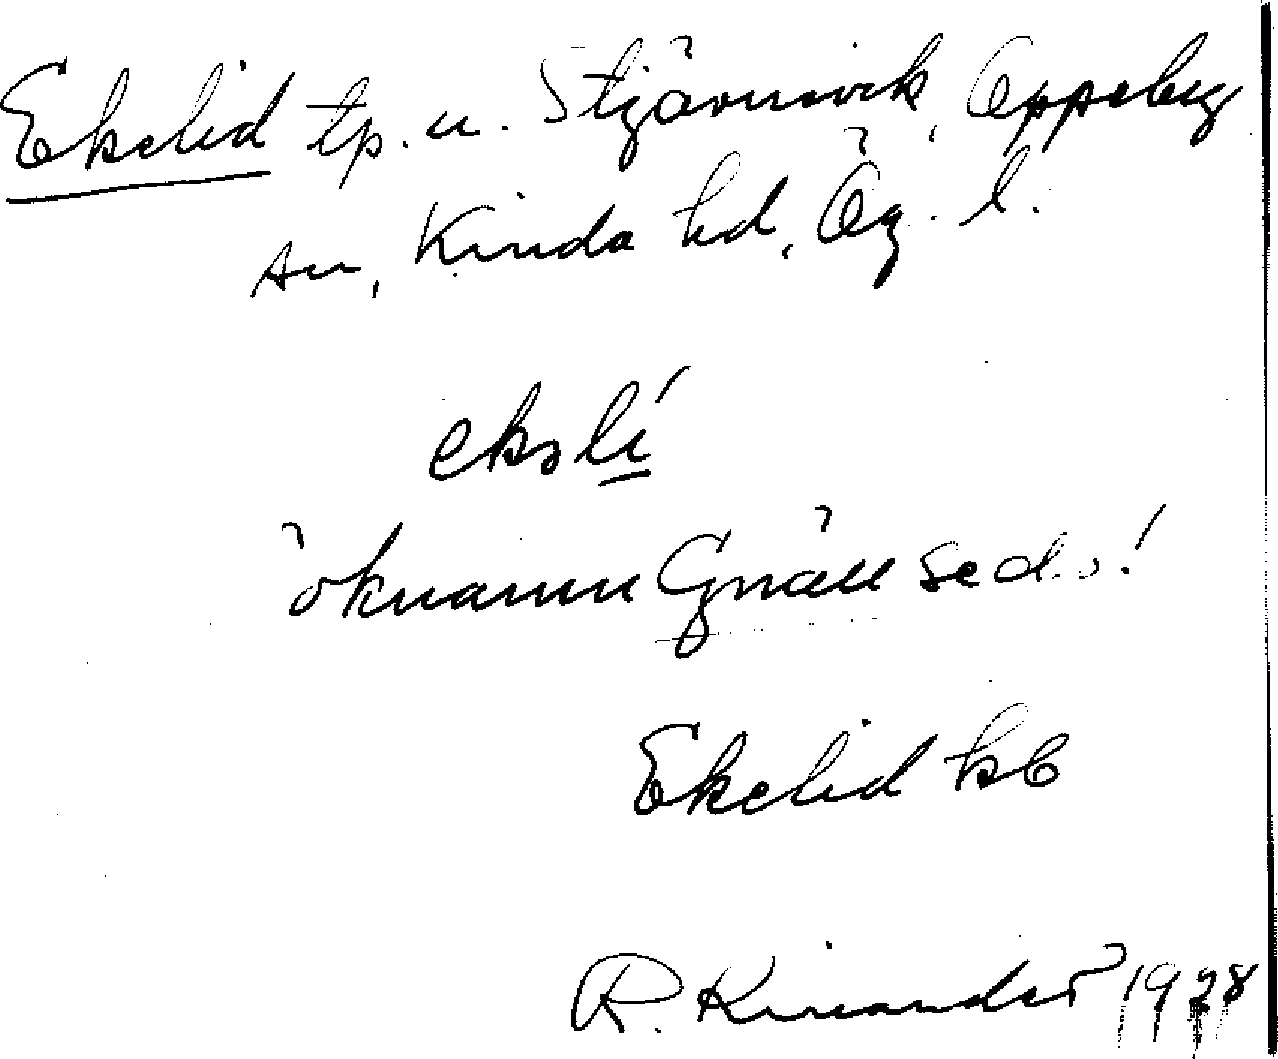 Ekelid tp. u. Stjärnevik, Oppeby
sn, Kinda hd, Ög. l.
ekəli ́
öknamn Gnäll se d. o!
Ekelid kb
R. Kinander 1928